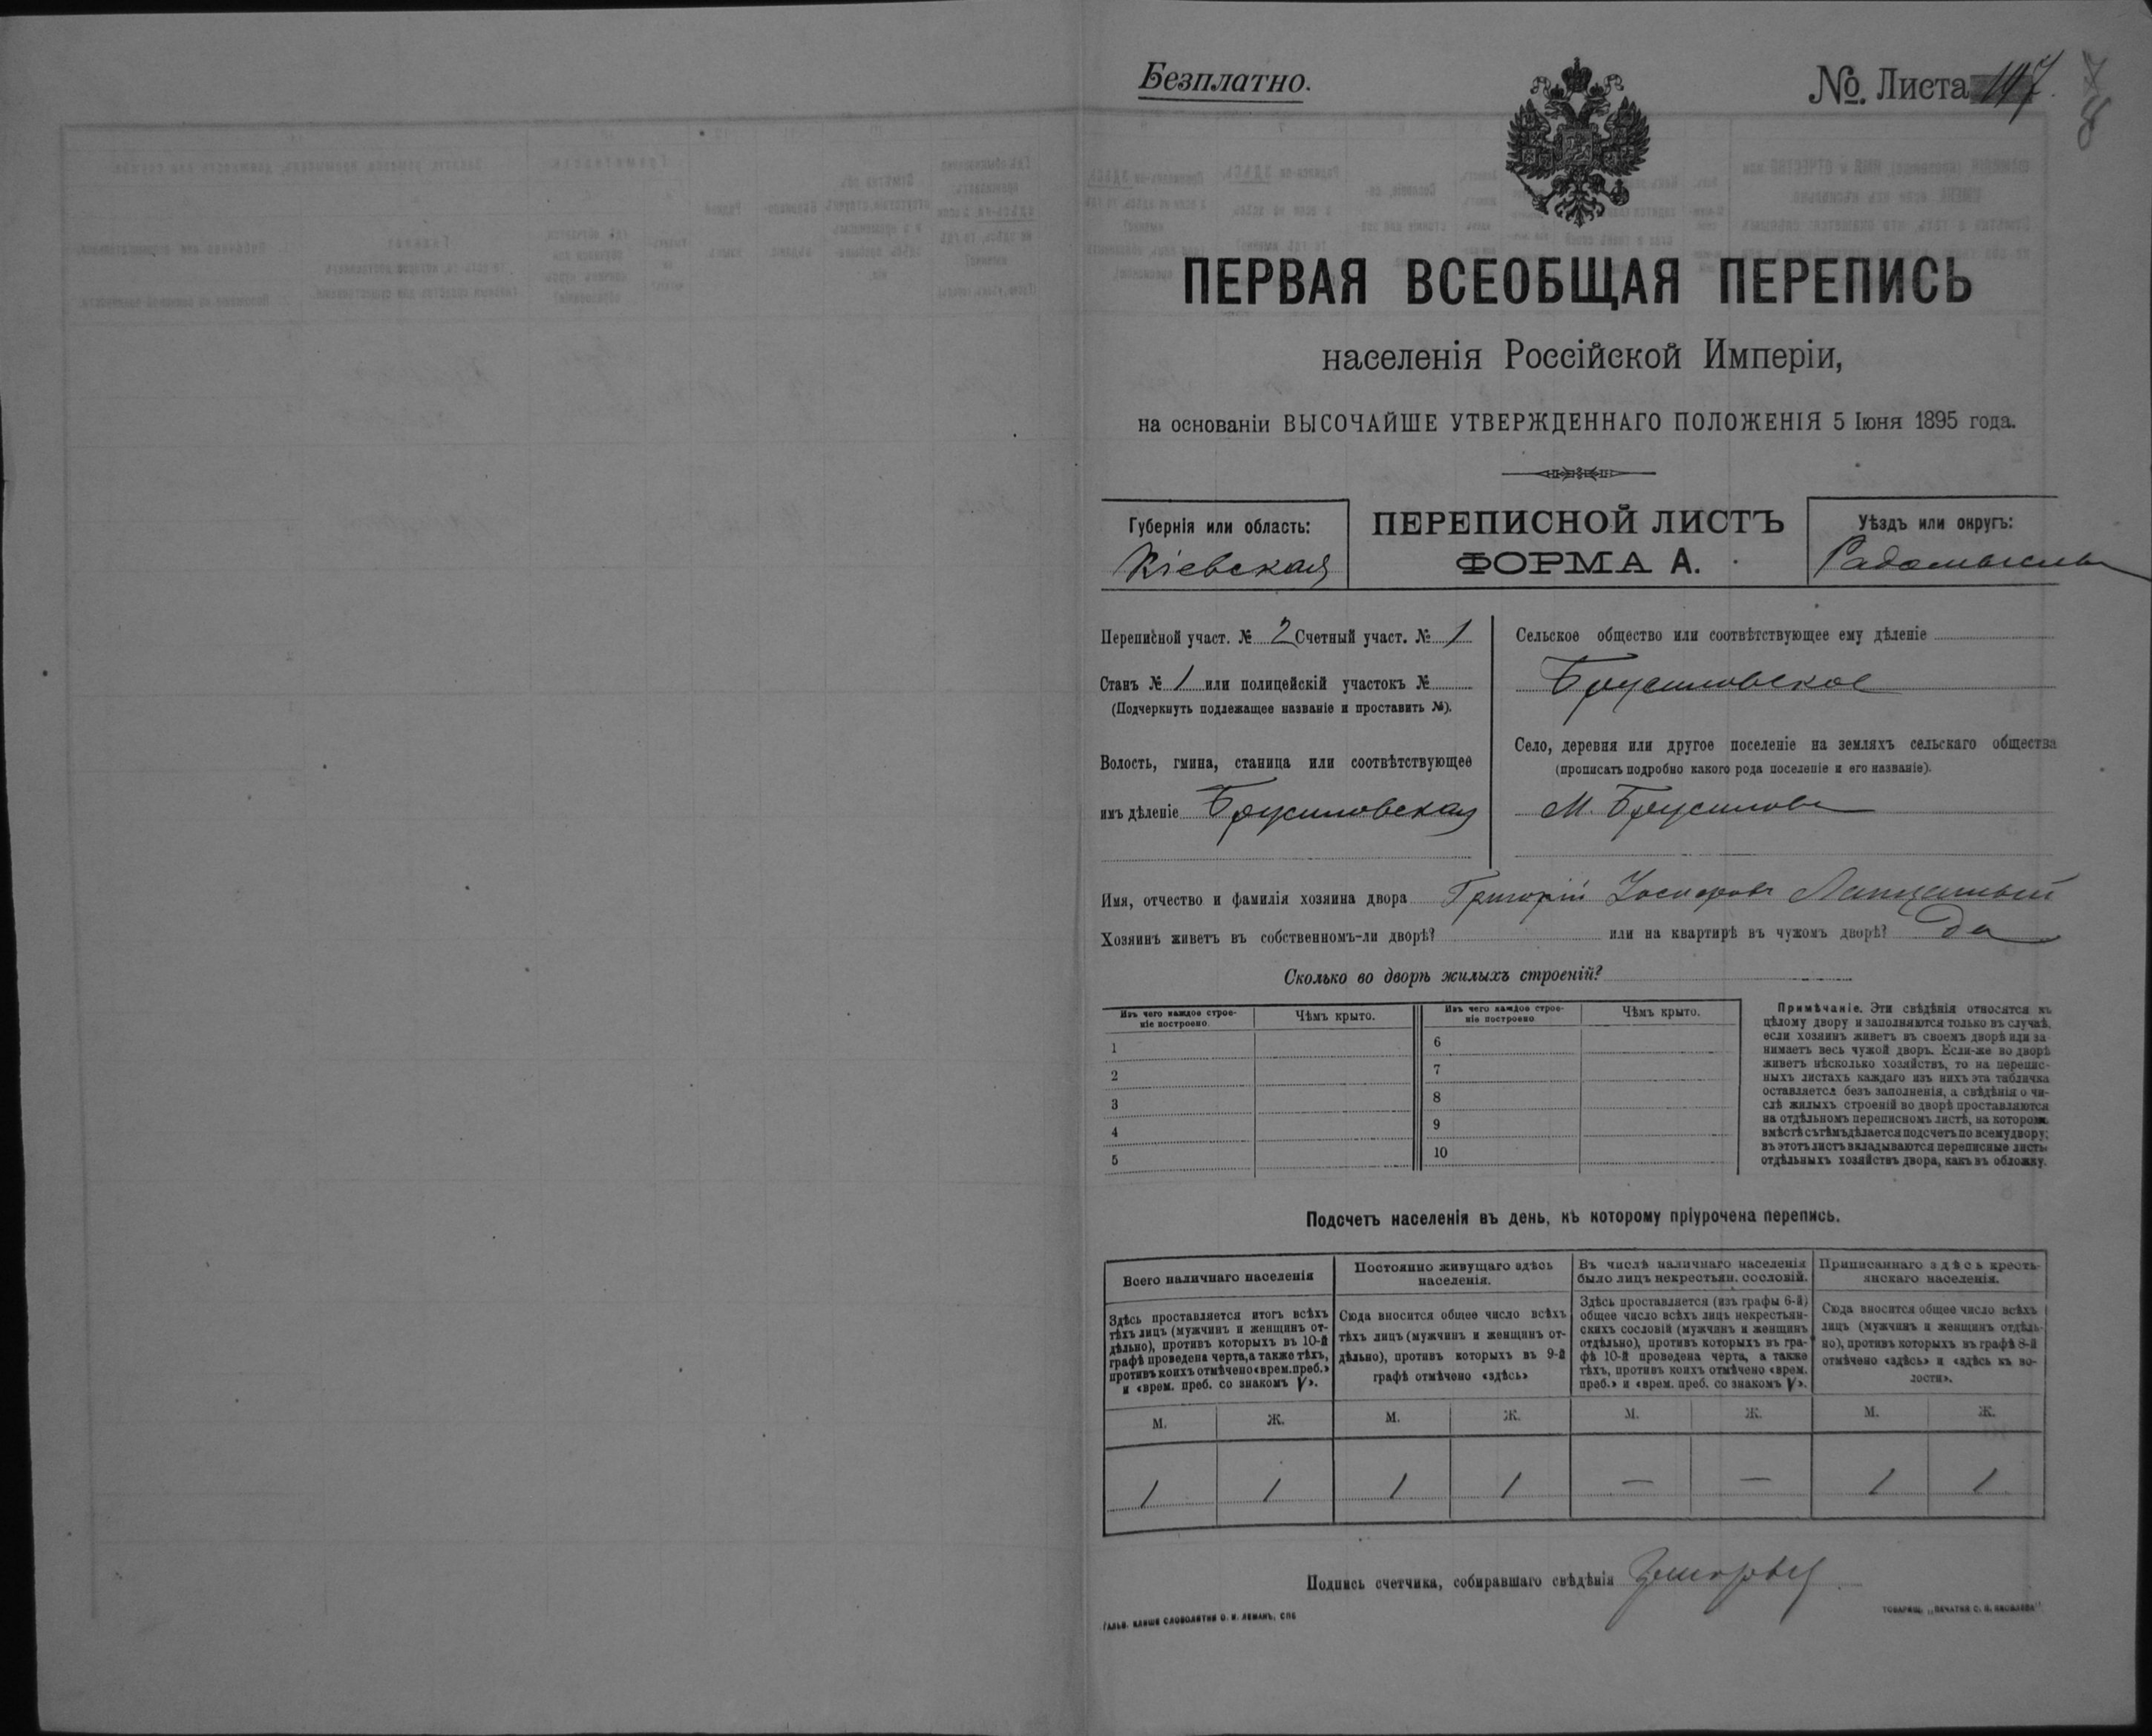 Безплатно.
№. Листа 147.
ПЕРВАЯ ВСЕОБЩАЯ ПЕРЕПИСЬ
населенія Россійской Имперіи,
на основаніи ВЫСОЧАЙШЕ УТВЕРЖДЕННАГО ПОЛОЖЕНІЯ 5 Іюня 1895 года.
Губернія или область:
Кіевская
ПЕРЕПИСНОЙ ЛИСТЪ
ФОРМА А.
Уѣздъ или округъ:
Радомысль
Переписной участ. № 2 Счетный участ. № 1
Станъ № 1 или полицейскій участокъ №
(Подчеркнуть подлежащее названіе и проставить №).
Волость, гмина, станица или соотвѣтствующее
имъ дѣленіе Брусиловская
Сельское общество или соотвѣтствующее ему дѣленіе
Брусиловское
Село, деревня или другое поселеніе на земляхъ сельскаго общества
(прописать подробно какого рода поселеніе и его названіе).
М. Брусиловъ
Имя, отчество и фамилія хозяина двора Григорій
Хозяинъ живетъ въ собственномъ-ли дворѣ? или на квартирѣ въ чужомъ дворѣ? Да
Сколько во дворѣ жилыхъ строеній?
Изъ чего каждое строе-
ніе построено.
Чѣмъ крыто.
Изъ чего каждое строе-
ніе построено
Чѣмъ крыто.
1
2
3
4
5
6
7
8
9
10
Примѣчаніе. Эти свѣдѣнія относятся къ
цѣлому двору и заполняются только въ случаѣ,
если хозяинъ живетъ въ своемъ дворѣ или за
нимаетъ весь чужой дворъ. Если-же во дворѣ
живетъ нѣсколько хозяйствъ, то на перепис-
ныхъ листахъ каждаго изъ нихъ эта табличка
оставляется безъ заполненія, а свѣдѣнія о чи-
слѣ жилыхъ строеній во дворѣ проставляются
на отдѣльномъ переписномъ листѣ, на которомъ
вмѣстѣ съ тѣмъ дѣлается подсчетъ по всему двору;
въ этотъ листъ вкладываются переписные листы
отдѣльныхъ хозяйствъ двора, какъ въ обложку.
Подсчетъ населенія въ день, къ которому пріурочена перепись.
Всего наличнаго населенія
Здѣсь проставляется итогъ всѣхъ
тѣхъ лицъ (мужчинъ и женщинъ от-
дѣльно), противъ которыхъ въ 10-й
графѣ проведена черта, а также тѣхъ,
противъ коихъ отмѣчено «врем. преб.»
и «врем. преб. со знакомъ V».
Постоянно живущаго здѣсь
населенія.
Сюда вносится общее число всѣхъ
тѣхъ лицъ (мужчинъ и женщинъ от-
дѣльно), противъ которыхъ въ 9-й
графѣ отмѣчено «здѣсь»
Въ числѣ наличнаго населенія
было лицъ некрестьян. сословій.
Здѣсь проставляется (изъ графы 6-й)
общее число всѣхъ лицъ некрестьян-
скихъ сословій (мужчинъ и женщинъ
отдѣльно), противъ которыхъ въ гра-
фѣ 10-й проведена черта, а также
тѣхъ, противъ коихъ отмѣчено «врем.
преб.» и «врем. преб. со знакомъ V».
Приписаннаго здѣсь кресть-
янскаго населенія.
Сюда вносится общее число всѣхъ
лицъ (мужчинъ и женщинъ отдѣль-
но), противъ которыхъ въ графѣ 8-й
отмѣчено «здѣсь» и «здѣсь къ во-
лости».
М. Ж. М. Ж. М. Ж. М. Ж.
1 1 1 1 — — 1 1
Подпись счетчика, собиравшаго свѣдѣнія
ГАЛЬВ. КЛИШЕ СЛОВОЛИТНИ О. И. ЛЕМАНЪ, СПБ
ТОВАРИЩ. „ПЕЧАТНЯ С. П. ЯКОВЛЕВА“